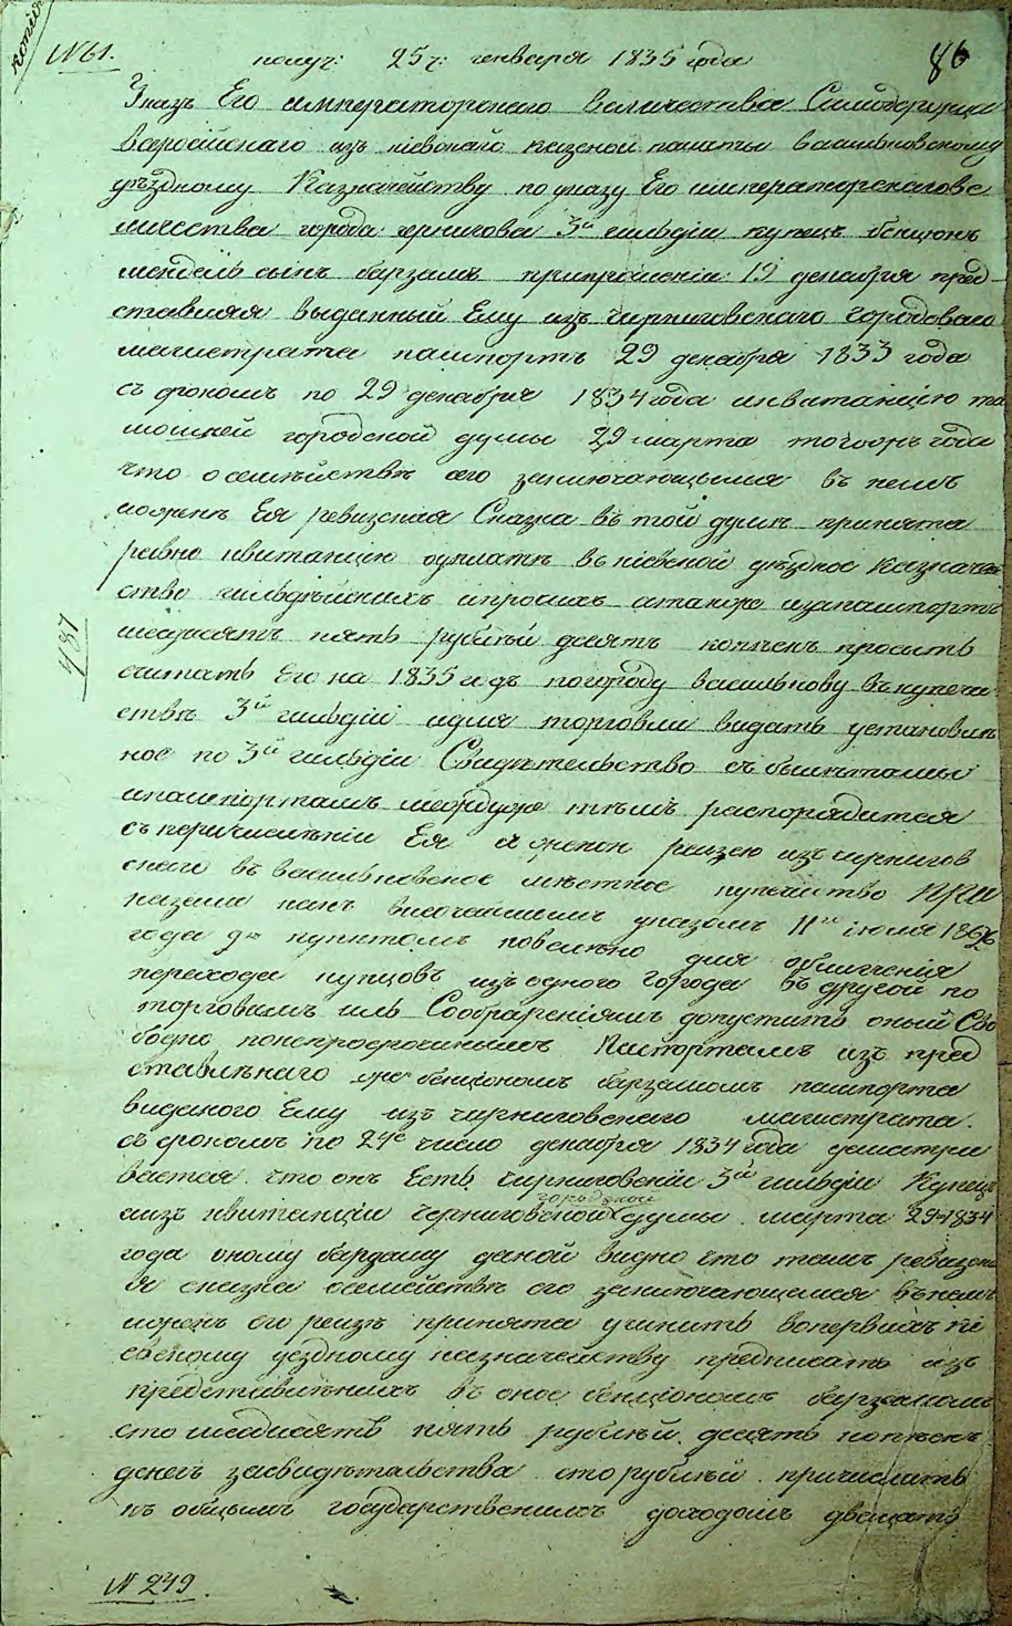 копія
№ 61. получ: 25 ч: генваря 1835 года 86
Указъ Его императорскаго величества Самодержца
всеросийскаго изъ кіевскаго казеной палаты васильковскому
уѣздному Казначейству по указу Его императорскагове
личества города чернигова 3й гильдіи купецъ бенціонъ
мендель сынъ барзамъ припрошеніи 19 декабря пред
ставляя выданный Ему изъ чирниговскаго городоваго
магистрата пашпортъ 29 декабря 1833 года
съ срокомъ по 29 декабря 1834 года иквитанцію та
мошней городской думы 29 марта тогожъ года
что осемѣйствѣ его заключающымся въ немъ
Ея ревизская Сказка въ той думѣ принята
равно квитанцію оуплатѣ въ кіевской уѣздное казначей
ство гильдѣйскихъ ипрочихъ атакже изапашпортъ
шодисятъ пять рублѣй десять копѣекъ проситъ
считать Его на 1835 годъ погороду василькову въкупече
ствѣ 3й гильдіи идля торговли видать установлѣ
ное по 3й гильдіи Свидѣтельство съ былѣтамы
ипашпортамъ межбудже тѣмъ распорядится
съ перичислѣніи Ея изъ чирнигов
скаго въ васильковское мѣстное купечество При
казали какъ высочайшимъ указомъ 11го іюля 18
года 9м пунктомъ повелѣно для облигченія
перехода купцовъ изъ одного города въ другой по
торговымъ иль Соображеніямъ допустить оный Сво
бодно понепросрочинымъ Паспортамъ изъ пред
ставлѣнаго бенціономъ барзамомъ пашпорта
виданого Ему изъ чирниговскаго магистрата.
съ срокомъ по 29е число декабря 1834 года усматри
вается что онъ Есть Чирниговскіи 3й гильдіи Купецъ
аизъ квитанціи черниговской городской думы марта 29 1834
года оному барзаму даной видно что тамъ ревизска
я сказка осемействѣ его заключающемся въ немъ
принята учинить вопервыхъ кі
евскому уездному казначейству предписать изъ
представлѣныхъ въ оное бенціономъ барзамомъ
сто шодисять пять рублѣй десять копѣекъ
денегъ засвидѣтельства сто рублѣй причислить
къ общымъ государственимъ доходамъ двацать
481
№ 249.